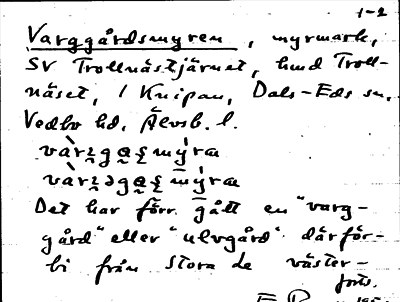 1-2
Varggårdsmyren, myrmark,
SV Trollnästjärnet, hmd Troll-
näset, 1 Knipan, Dals-Eds sn,
Vedbo hd, Älvsb. l.
Det har förr gått en "varg-
gård" eller "ulvgård" därför-
bi från Stora de väster-
forts.